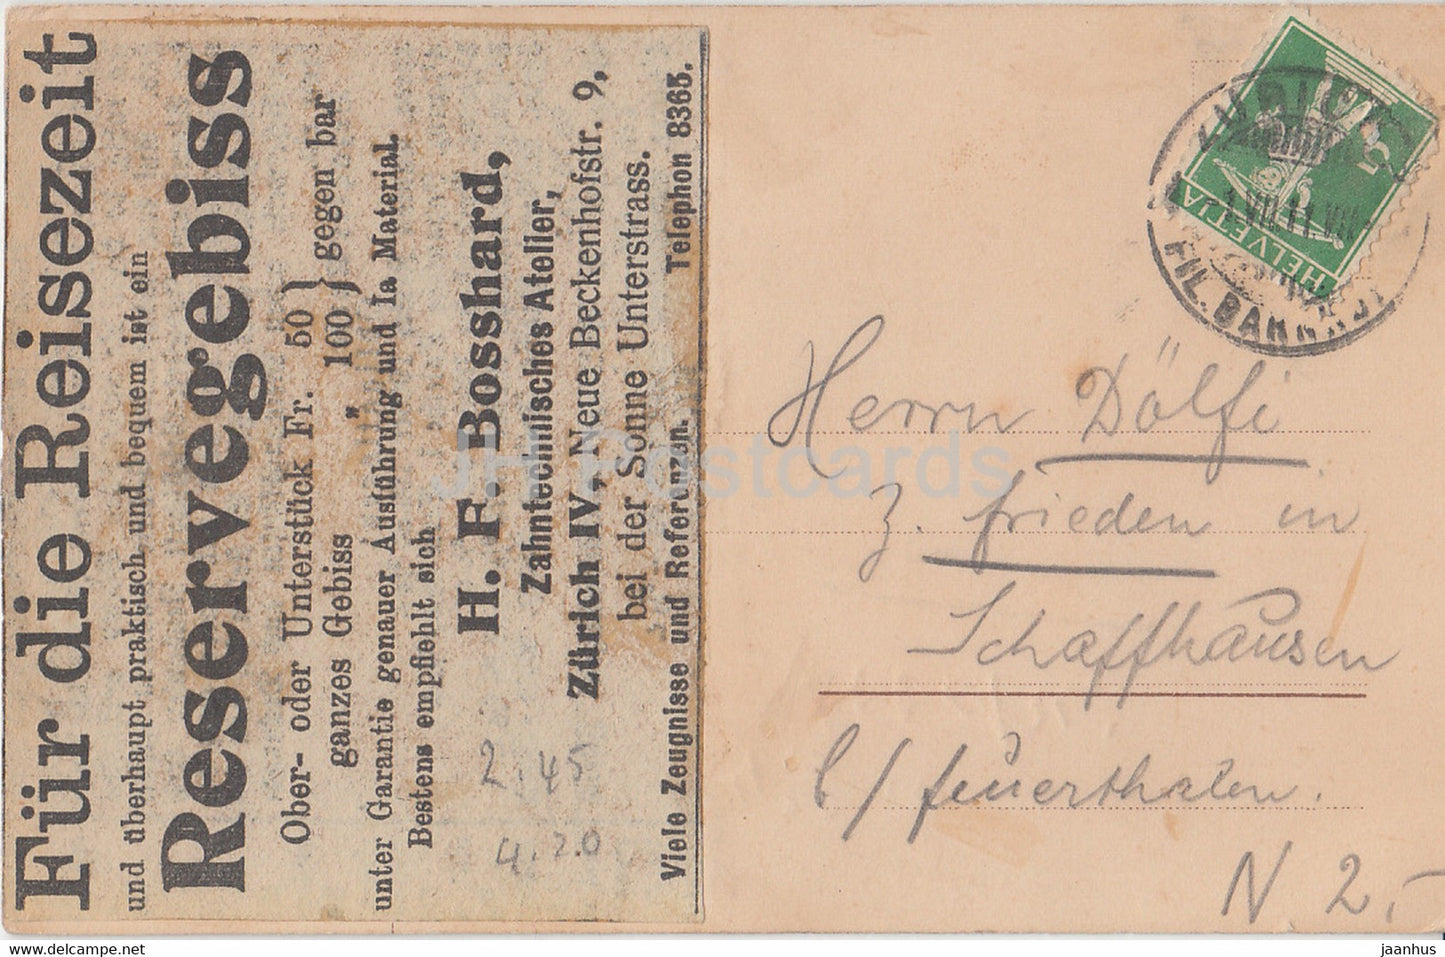 Für die Reisezeit
und überhaupt praktisch und bequem ist ein
Reservegebiss
Ober- oder Unterstück Fr. 50 } gegen bar
ganzes Gebiss „ 100
unter Garantie genauer Ausführung und Ia Material.
Bestens empfiehlt sich
H. F. Bosshard,
Zahntechnisches Atelier,
Zürich IV, Neue Beckenhofstr. 9,
bei der Sonne Unterstrass.
Viele Zeugnisse und Referenzen. Telephon 8365.
2.45
4.20
HELVETIA
5
1.VIII.11.VIII
FIL. BAHNHOF
Herrn Dölfi
z. Frieden in
Schaffhausen
b/ Feuerthalen.
N 2.-
JH Postcards
www.hippostcard.com/store/jaanhus
jaanhus